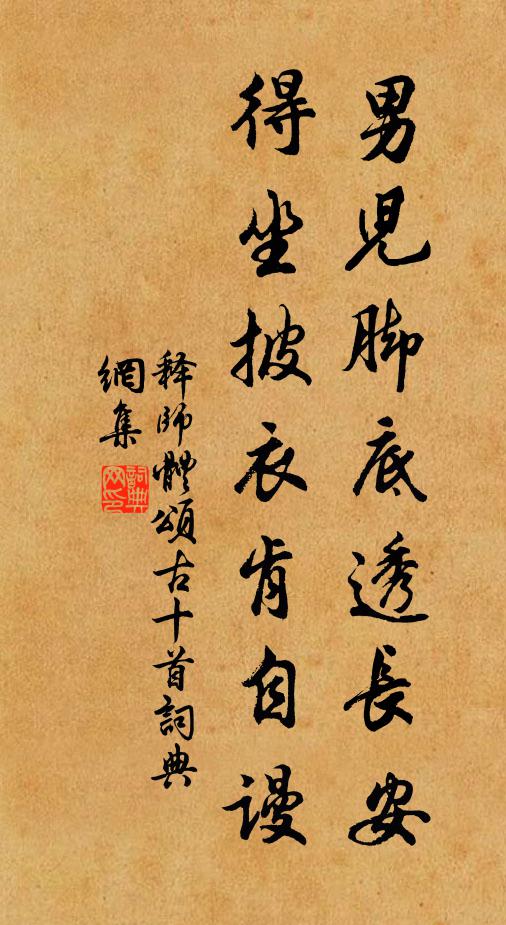 男兒脚底透長安
得坐披衣肯自謾
释師體頌古十首詞典
網集
詞典
网印